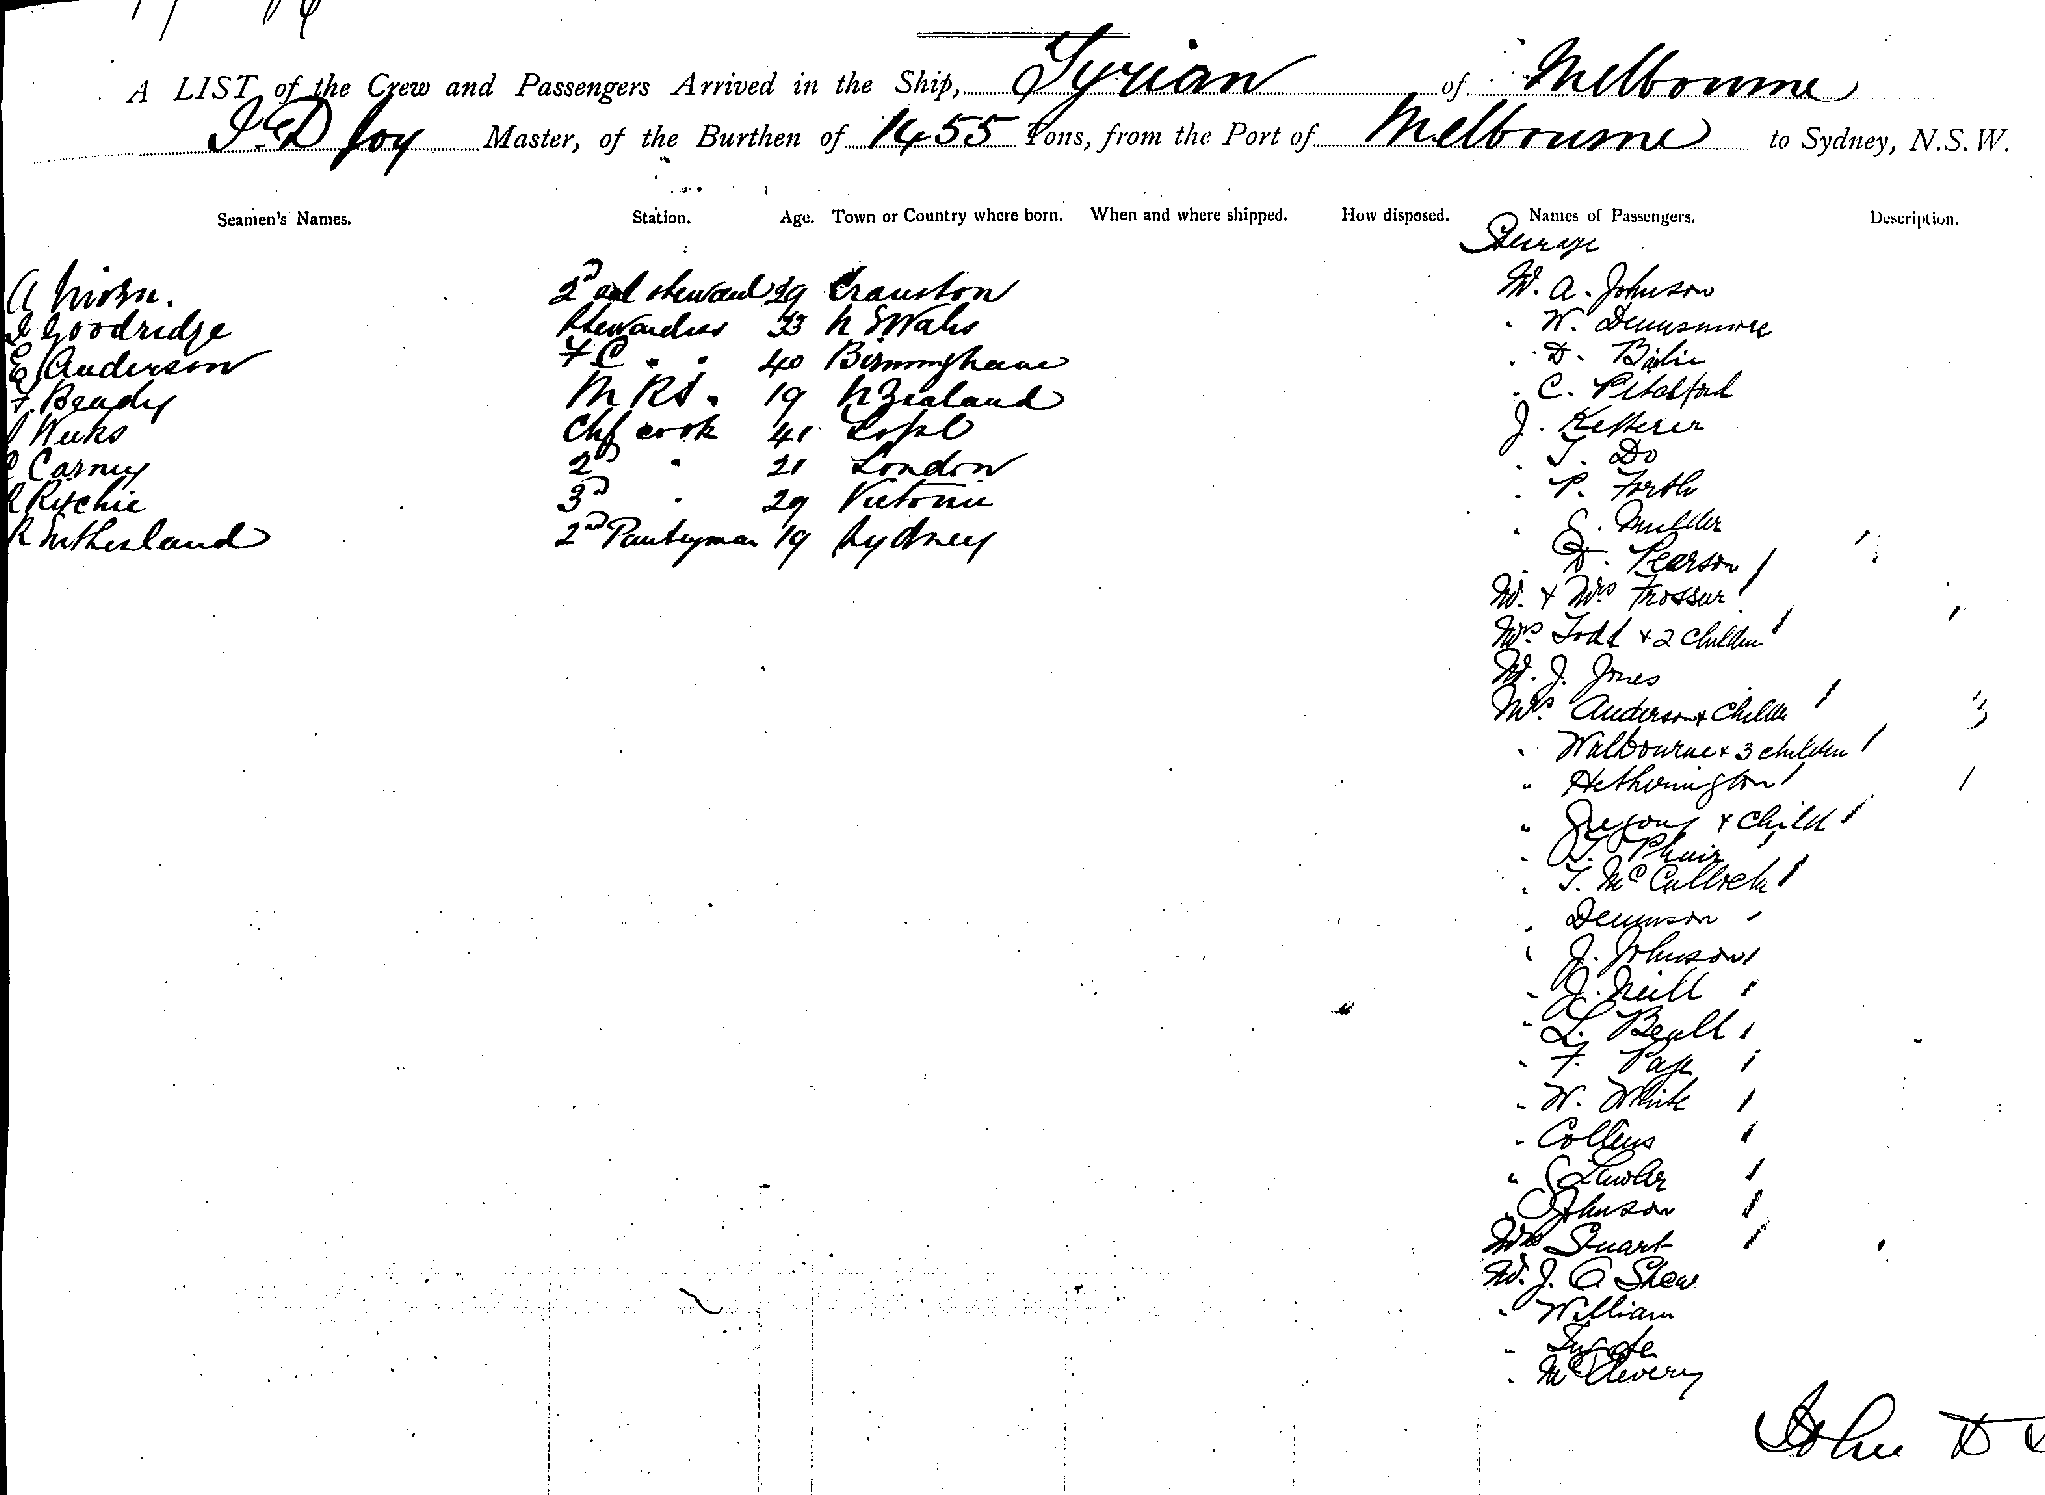 A LIST of the Crew and Passengers Arrived in the Ship, Tyrian of Melbourne
J. D Joy Master, of the Burthen of 1455 Tons, from the Port of Melbourne to Sydney, N.S.W.
Seamen's Names. Station. Age. Town or Country where born. When and where shipped. How disposed. Names of Passengers. Description.
Steerage
A 2d steward 29 Cranston M. A. Johnson
Goodridge Stewardess 33 N S Wales " W. Dennsmore
E Anderson F C " " 40 Birmingham " D.
F Beady M RS " 19 N Zealand " C. Pitchford
Weeks Chf cook 41 Lpl J. Ketterer
Carney 2d " 21 London " T. Do
R Ritchie 3d " 29 Victoria " P. Forth
R Sutherland 2d Pantryman 19 Sydney " G. Mulder
" D. Pearson
M. & Mrs Frossar
Mrs Todd & 2 Children
M. J. Jones
Mrs Anderson & Childn
" Walbourne & 3 children
" Hetherington
" Gregory & Child
" J. Phair
" T. McCulloch
" Dennison
" J. Johnson
" J. Neill
" L. Beall
" F. Page
" W. White
" Collins
" Lawler
" Johnson
Mrs Stuart
M. J. A Shaw
" William
"
" McClevery
John D